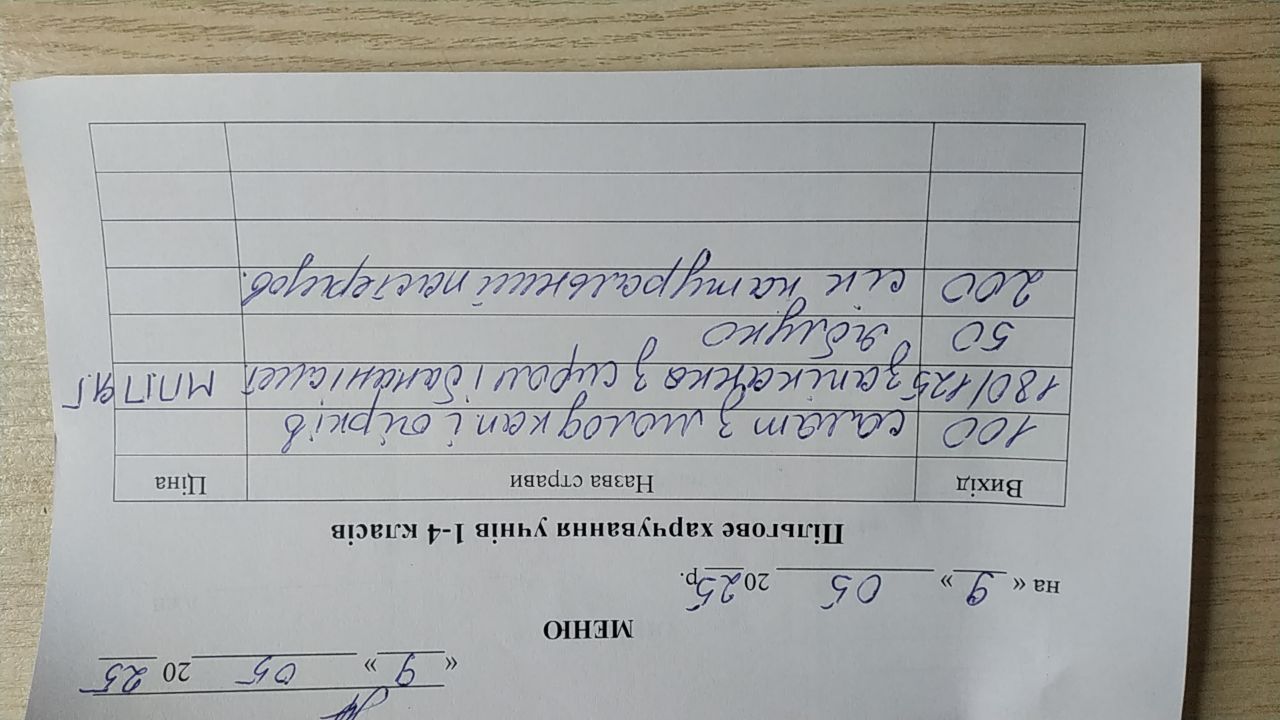 « 9 » 05 20 25
МЕНЮ
на « 9 » 05 2025р.
Пільгове харчування учнів 1-4 класів
Вихід Назва страви Ціна
100 салат з молод кап. і огірків
180/125 запіканка з сиром і бананами МПГЯГ
50 яблуко
200 сік натуральний пастеризов.